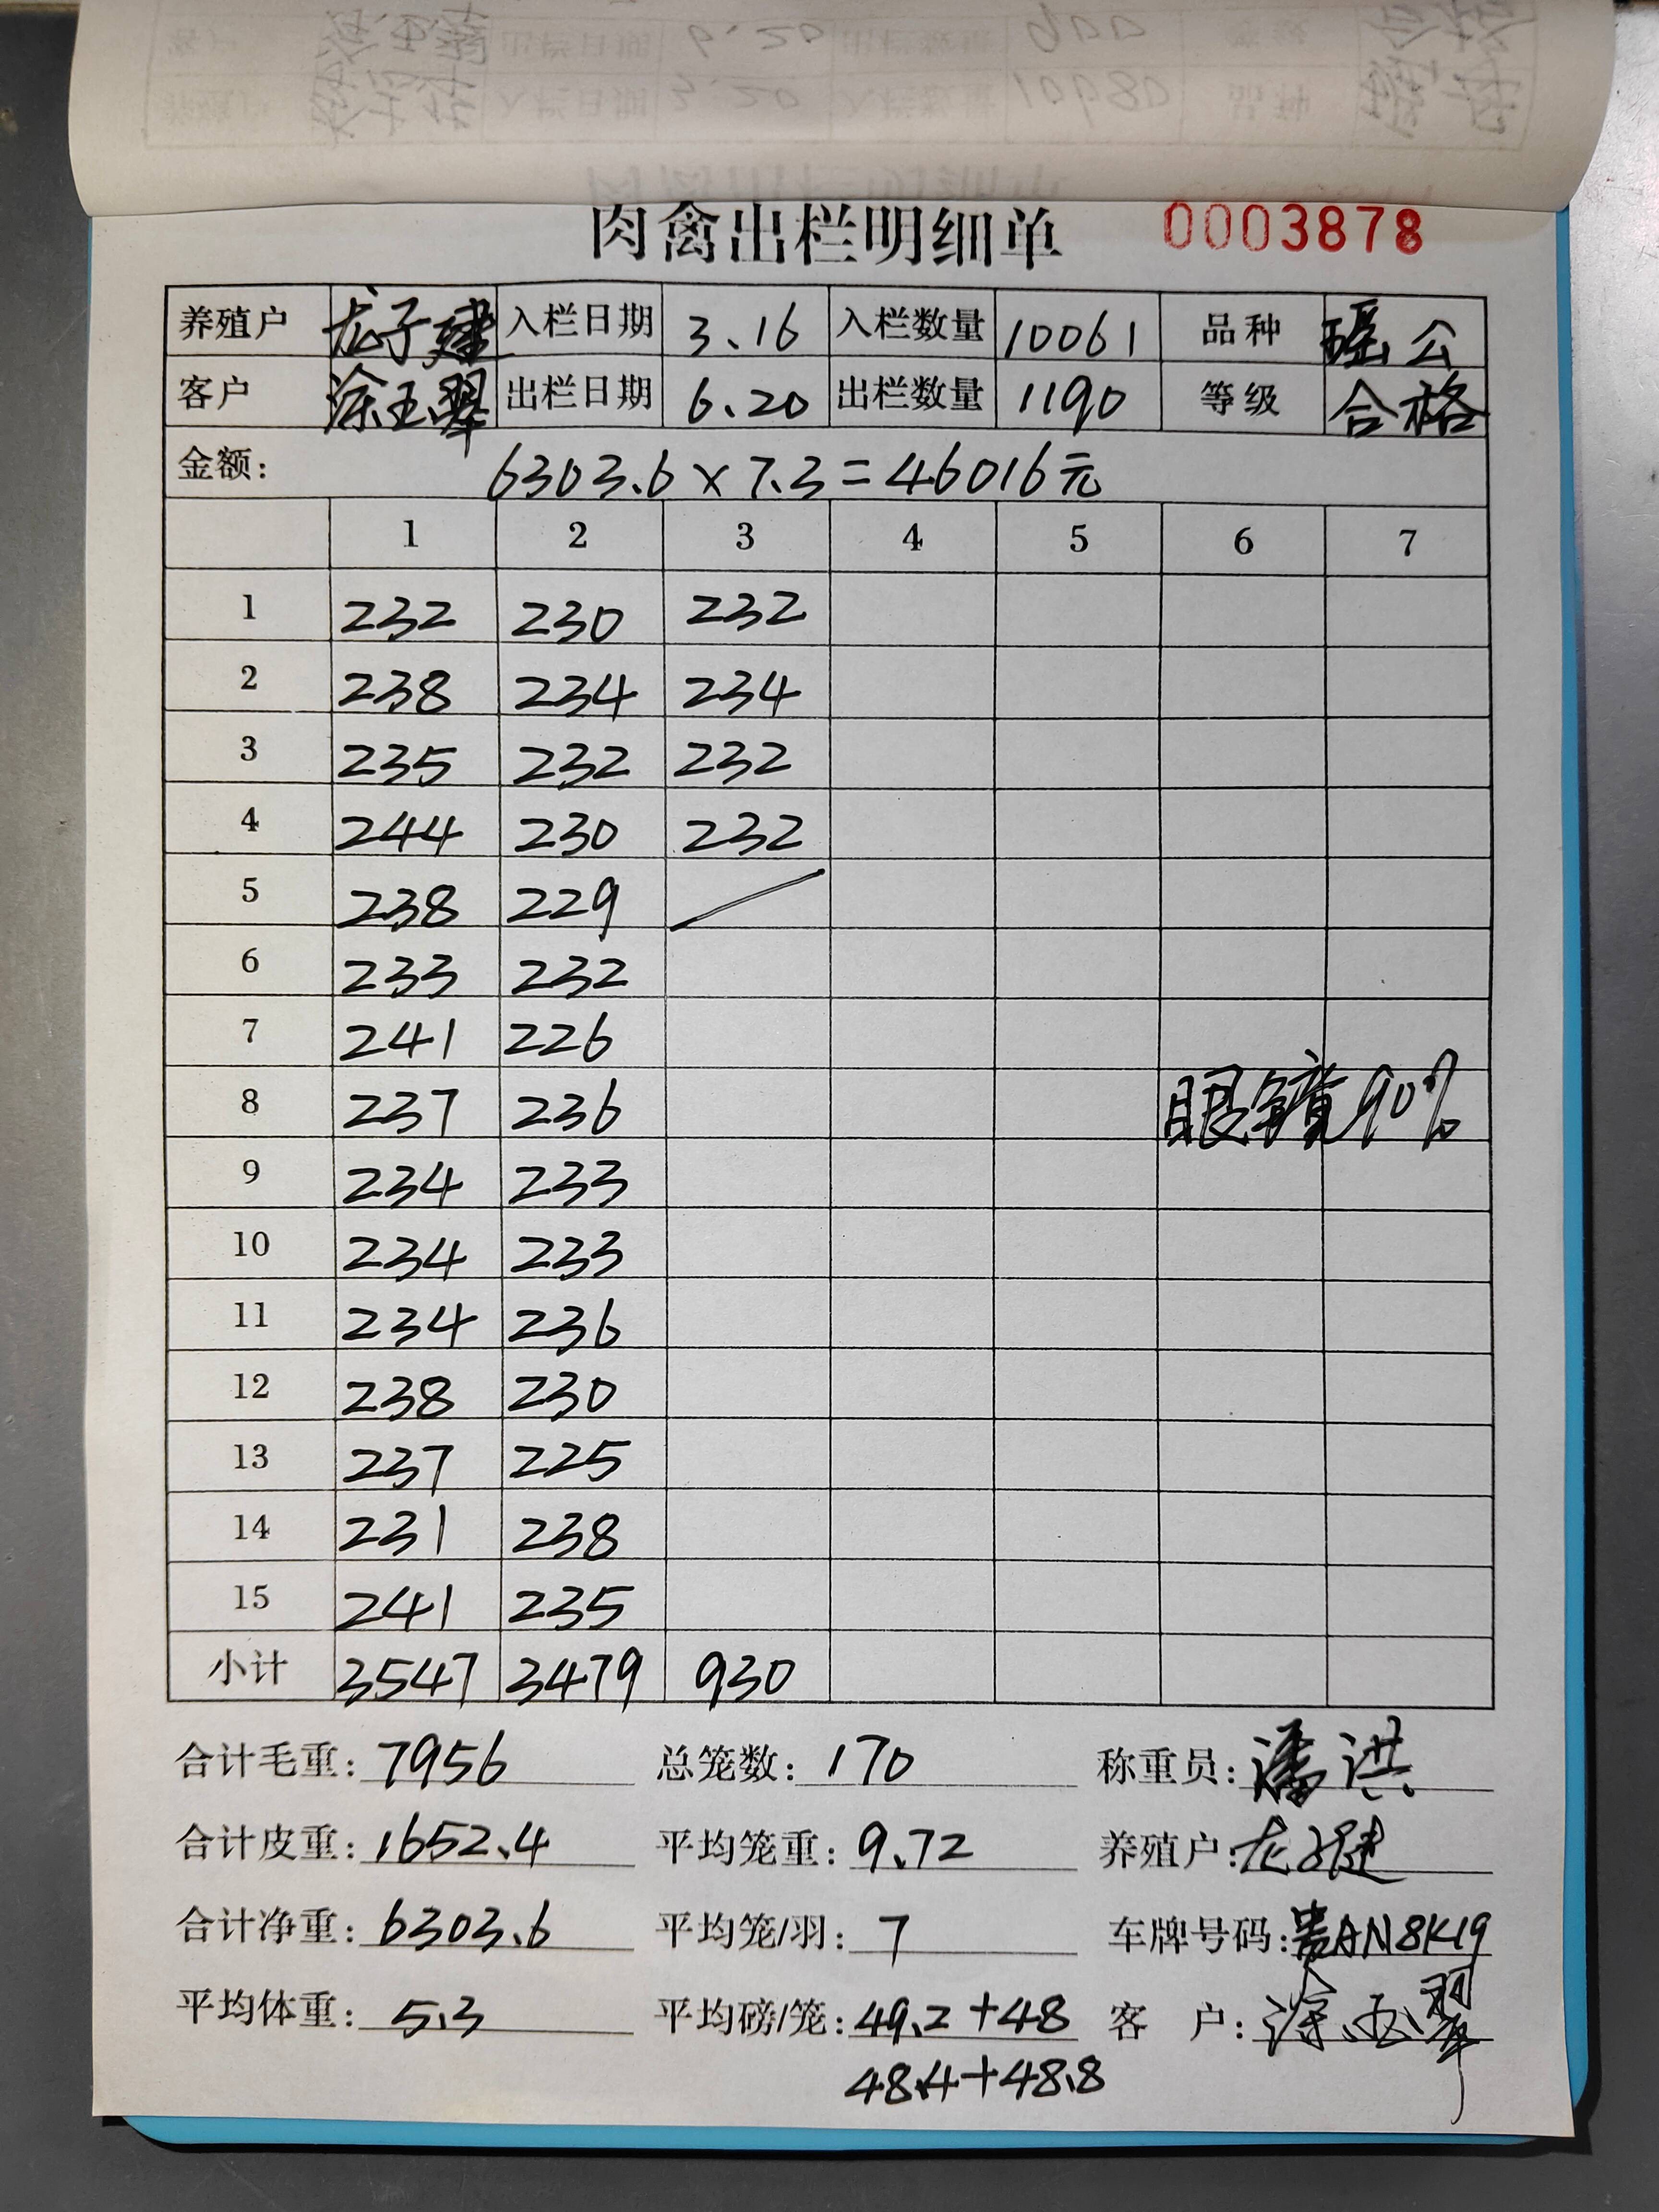 肉禽出栏明细单 0003878
养殖户 龙子建 入栏日期 3.16 入栏数量 10061 品种 瑶公
客户 涂玉翠 出栏日期 6.20 出栏数量 1190 等级 合格
金额: 6303.6×7.3=46016元
1 2 3 4 5 6 7
1 232 230 232
2 238 234 234
3 235 232 232
4 244 230 232
5 238 229
6 233 232
7 241 226
8 237 236 眼镜90%
9 234 233
10 234 233
11 234 236
12 238 230
13 237 225
14 231 238
15 241 235
小计 3547 3479 930
合计毛重: 7956 总笼数: 170 称重员: 潘洪
合计皮重: 1652.4 平均笼重: 9.72 养殖户: 龙子建
合计净重: 6303.6 平均笼/羽: 7 车牌号码: 贵AN8K19
平均体重: 5.3 平均磅/笼: 49.2+48 客 户: 涂玉翠
48.4+48.8